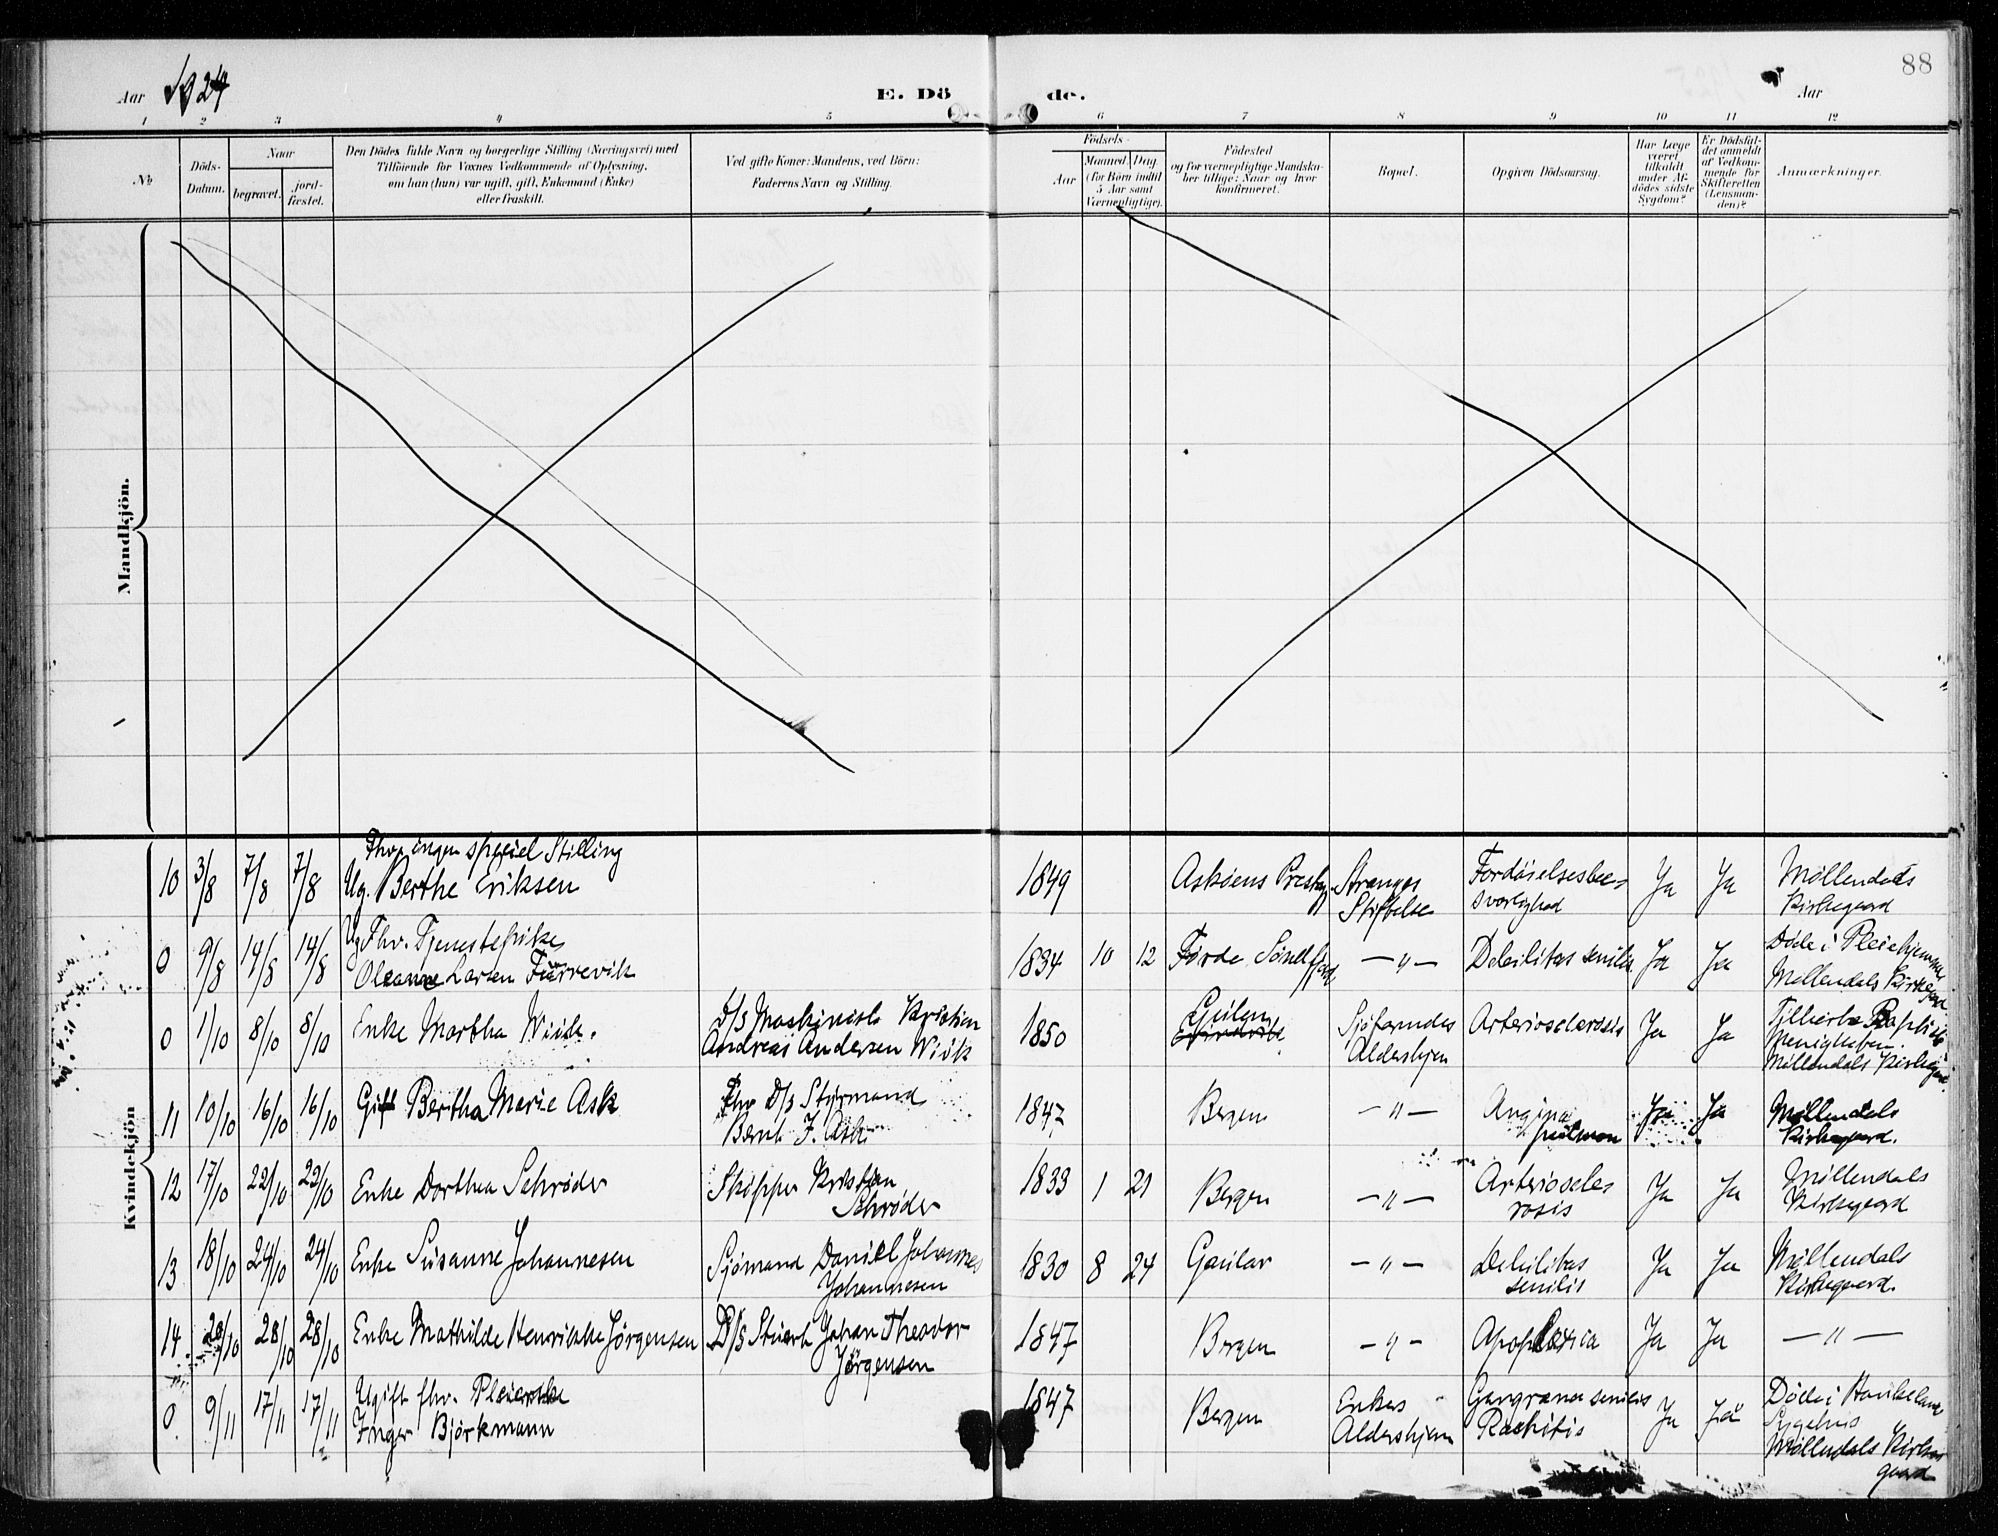 88
Aar 1924
E. Dö
de.
Aar
1 2 3 4 5 6 7 8 9 10 11 12
No
Döds-
Datum.
Naar
begravet.
jord-
fæstet.
Den Dödes fulde Navn og borgerlige Stilling (Næringsvei) med
Tilföiende for Voxnes Vedkommende af Oplysning,
om han (hun) var ugift, gift, Enkemand (Enke)
eller fraskilt.
Ved gifte Koner: Mandens, ved Börn:
Faderens Navn og Stilling.
Födsels-
Aar
Maaned. Dag.
(for Börn indtil
5 Aar samt
Værnepligtige).
Födested
og for værnepligtige Mandska-
ber tillige: Naar og hvor
konfirmeret.
Bopæl.
Opgiven Dödsaarsag.
Har Læge
været
tilkaldt
under Af-
dödes sidste
Sygdom?
Er Dödsfal-
det anmeldt
af Vedkom-
mende for
Skifteretten
(Lensman-
den)?
Anmærkninger.
Mandkjön.
Kvindekjön
Fhv. ingen speciel Stilling
10 3/8 7/8 7/8 Ug. Berthe Eriksen 1849 Askøens Prestgj Stranges Fordøielsesbe- Ja Ja Møllendals
Stiftelse sværlighed Kirkegaard
Ug Fhv. Tjenestepike
0 9/8 14/8 14/8 Oleanne Larsen Furrevik 1834 10 12 Førde Søndfjord —"— Debilitas senilis Ja Ja Døde i Pleiehjemmet
Møllendals Kirkegaard
0 1/10 8/10 8/10 Enke Martha Wiik. D/s Maskinist Kristian 1850 Gulen Sjøfarendes Arteriosclerosis Ja Ja
Andreas Andersen Wiik Aldershjem Møllendals Kirkegaard
11 10/10 16/10 16/10 Gift Bertha Marie Ask Fhv D/s Styrmand 1847 Bergen —"— Angina Ja Ja Møllendals
Bernt J. Ask pulmon Kirkegaard.
12 17/10 22/10 22/10 Enke Dorthea Schrøder Skipper Kristian 1833 1 21 Bergen —"— Arterioscle Ja Ja Møllendals
Schrøder rosis Kirkegaard
13 18/10 24/10 24/10 Enke Susanne Johannesen Sjømand Daniel Johannes 1830 8 24 Gaular —"— Debilitas Ja Ja Møllendals
Johannesen senilis Kirkegaard.
14 20/10 28/10 28/10 Enke Mathilde Henrikke Jørgensen D/s Stuert Johan Theodor 1847 Bergen —"— Apoplexia Ja Ja —"—
Jørgensen
Ugift fhv. Pleierske
0 9/11 17/11 17/11 Inger Björkmann 1847 Bergen Enkes Gangræna senilis Ja Ja Døde i Haukeland
Aldershjem Rachitis Sygehus
Møllendals Kirke
gaard